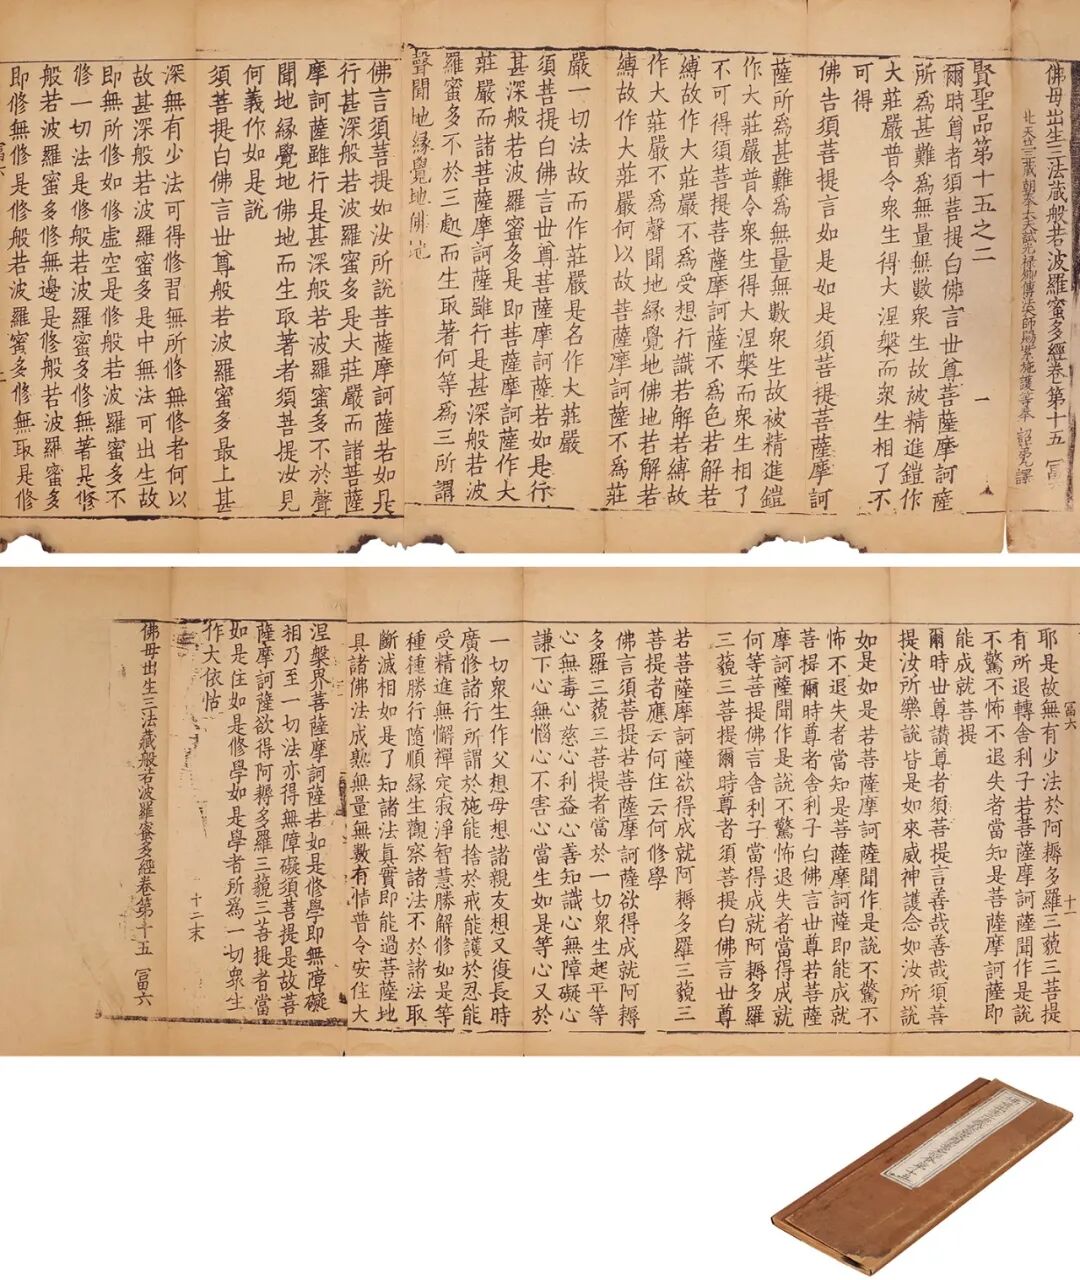 佛母出生三法藏般若波羅蜜多經卷第十五 冨六
北天竺三藏朝奉大夫試光祿卿傳法大師賜紫施護等奉 詔第九譯
賢聖品第十五之二
一
爾時尊者須菩提白佛言世尊菩薩摩訶薩
所為甚難為無量無數眾生故被精進鎧作
大莊嚴普令眾生得大涅槃而眾生相了不
可得
佛告須菩提言如是如是須菩提菩薩摩訶
薩所為甚難為無量無數眾生故被精進鎧
作大莊嚴普令眾生得大涅槃而眾生相了
不可得須菩提菩薩摩訶薩不為色若解若
縛故作大莊嚴不為受想行識若解若縛故
作大莊嚴不為聲聞地緣覺地佛地若解若
縛故作大莊嚴何以故菩薩摩訶薩不為莊
嚴一切法故而作莊嚴是名作大莊嚴
須菩提白佛言世尊菩薩摩訶薩若如是行
甚深般若波羅蜜多是即菩薩摩訶薩作大
莊嚴而諸菩薩摩訶薩雖行是甚深般若波
羅蜜多不於三處而生取著何等為三所謂
聲聞地緣覺地佛地
佛言須菩提如汝所說菩薩摩訶薩若如是
行甚深般若波羅蜜多是大莊嚴而諸菩薩
摩訶薩雖行是甚深般若波羅蜜多不於聲
聞地緣覺地佛地而生取著者須菩提汝見
何義作如是說
須菩提白佛言世尊般若波羅蜜多最上甚
深無有少法可得修習無所修無修者何以
故甚深般若波羅蜜多是中無法可出生故
即無所修如修虛空是修般若波羅蜜多不
修一切法是修般若波羅蜜多修無著是修
般若波羅蜜多修無邊是修般若波羅蜜多
即修無修是修般若波羅蜜多修無取是修
冨六
耶是故無有少法於阿耨多羅三藐三菩提
有所退轉舍利子若菩薩摩訶薩聞作是說
不驚不怖不退失者當知是菩薩摩訶薩即
能成就菩提
冨六 十一
爾時世尊讚尊者須菩提言善哉善哉須菩
提汝所樂說皆是如來威神護念如汝所說
如是如是若菩薩摩訶薩聞作是說不驚不
怖不退失者當知是菩薩摩訶薩即能成就
菩提爾時尊者舍利子白佛言世尊若菩薩
摩訶薩聞作是說不驚怖退失者當得成就
何等菩提佛言舍利子當得成就阿耨多羅
三藐三菩提爾時尊者須菩提白佛言世尊
若菩薩摩訶薩欲得成就阿耨多羅三藐三
菩提者應云何住云何修學
佛言須菩提若菩薩摩訶薩欲得成就阿耨
多羅三藐三菩提者當於一切眾生起平等
心無毒心慈心利益心善知識心無障礙心
謙下心無惱心不害心當生如是等心又於
一切眾生作父想母想諸親友想又復長時
廣修諸行所謂於施能捨於戒能護於忍能
受精進無懈禪定寂淨智慧勝解修如是等
種種勝行隨順緣生觀察諸法不於諸法取
斷滅相如是了知諸法真實即能過菩薩地
具諸佛法成熟無量無數有情普令安住大
涅槃界菩薩摩訶薩若如是修學即無障礙
相乃至一切法亦得無障礙須菩提是故菩
薩摩訶薩欲得阿耨多羅三藐三菩提者當
如是住如是修學如是學者所為一切眾生
作大依怙
十二末
佛母出生三法藏般若波羅蜜多經卷第十五 冨六